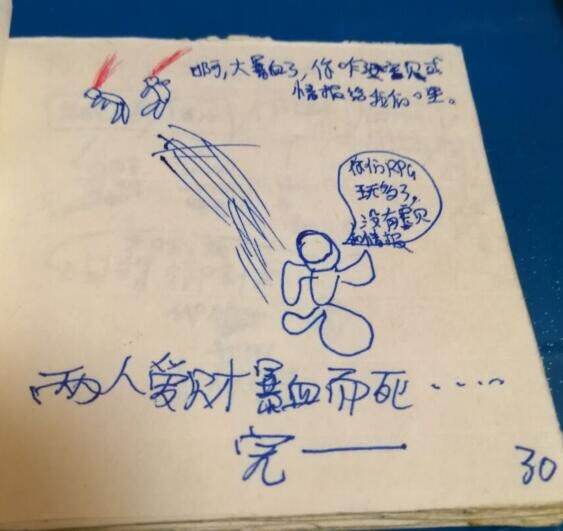 啊,大暴血了,你咋没宝贝或
情报给我们哩。
你们RPG
玩多了,
没有宝贝
和情报
两人爱财暴血而死.....
完——
30